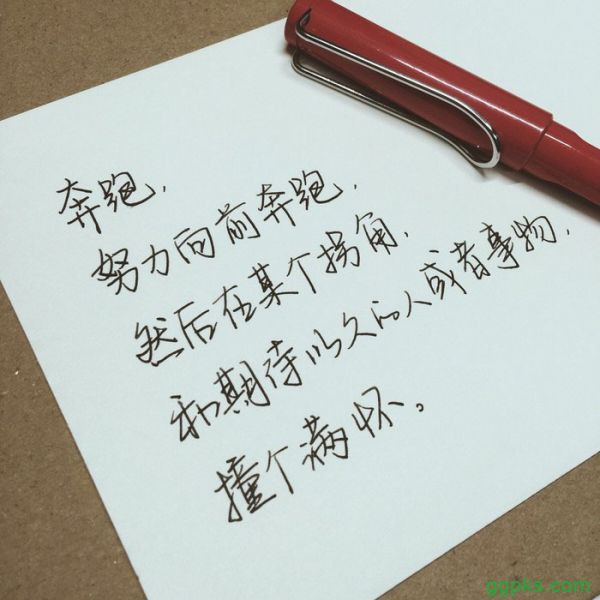 奔跑,
努力向前奔跑,
然后在某个拐角,
和期待以久的人或者事物,
撞个满怀。
ggpkx.com